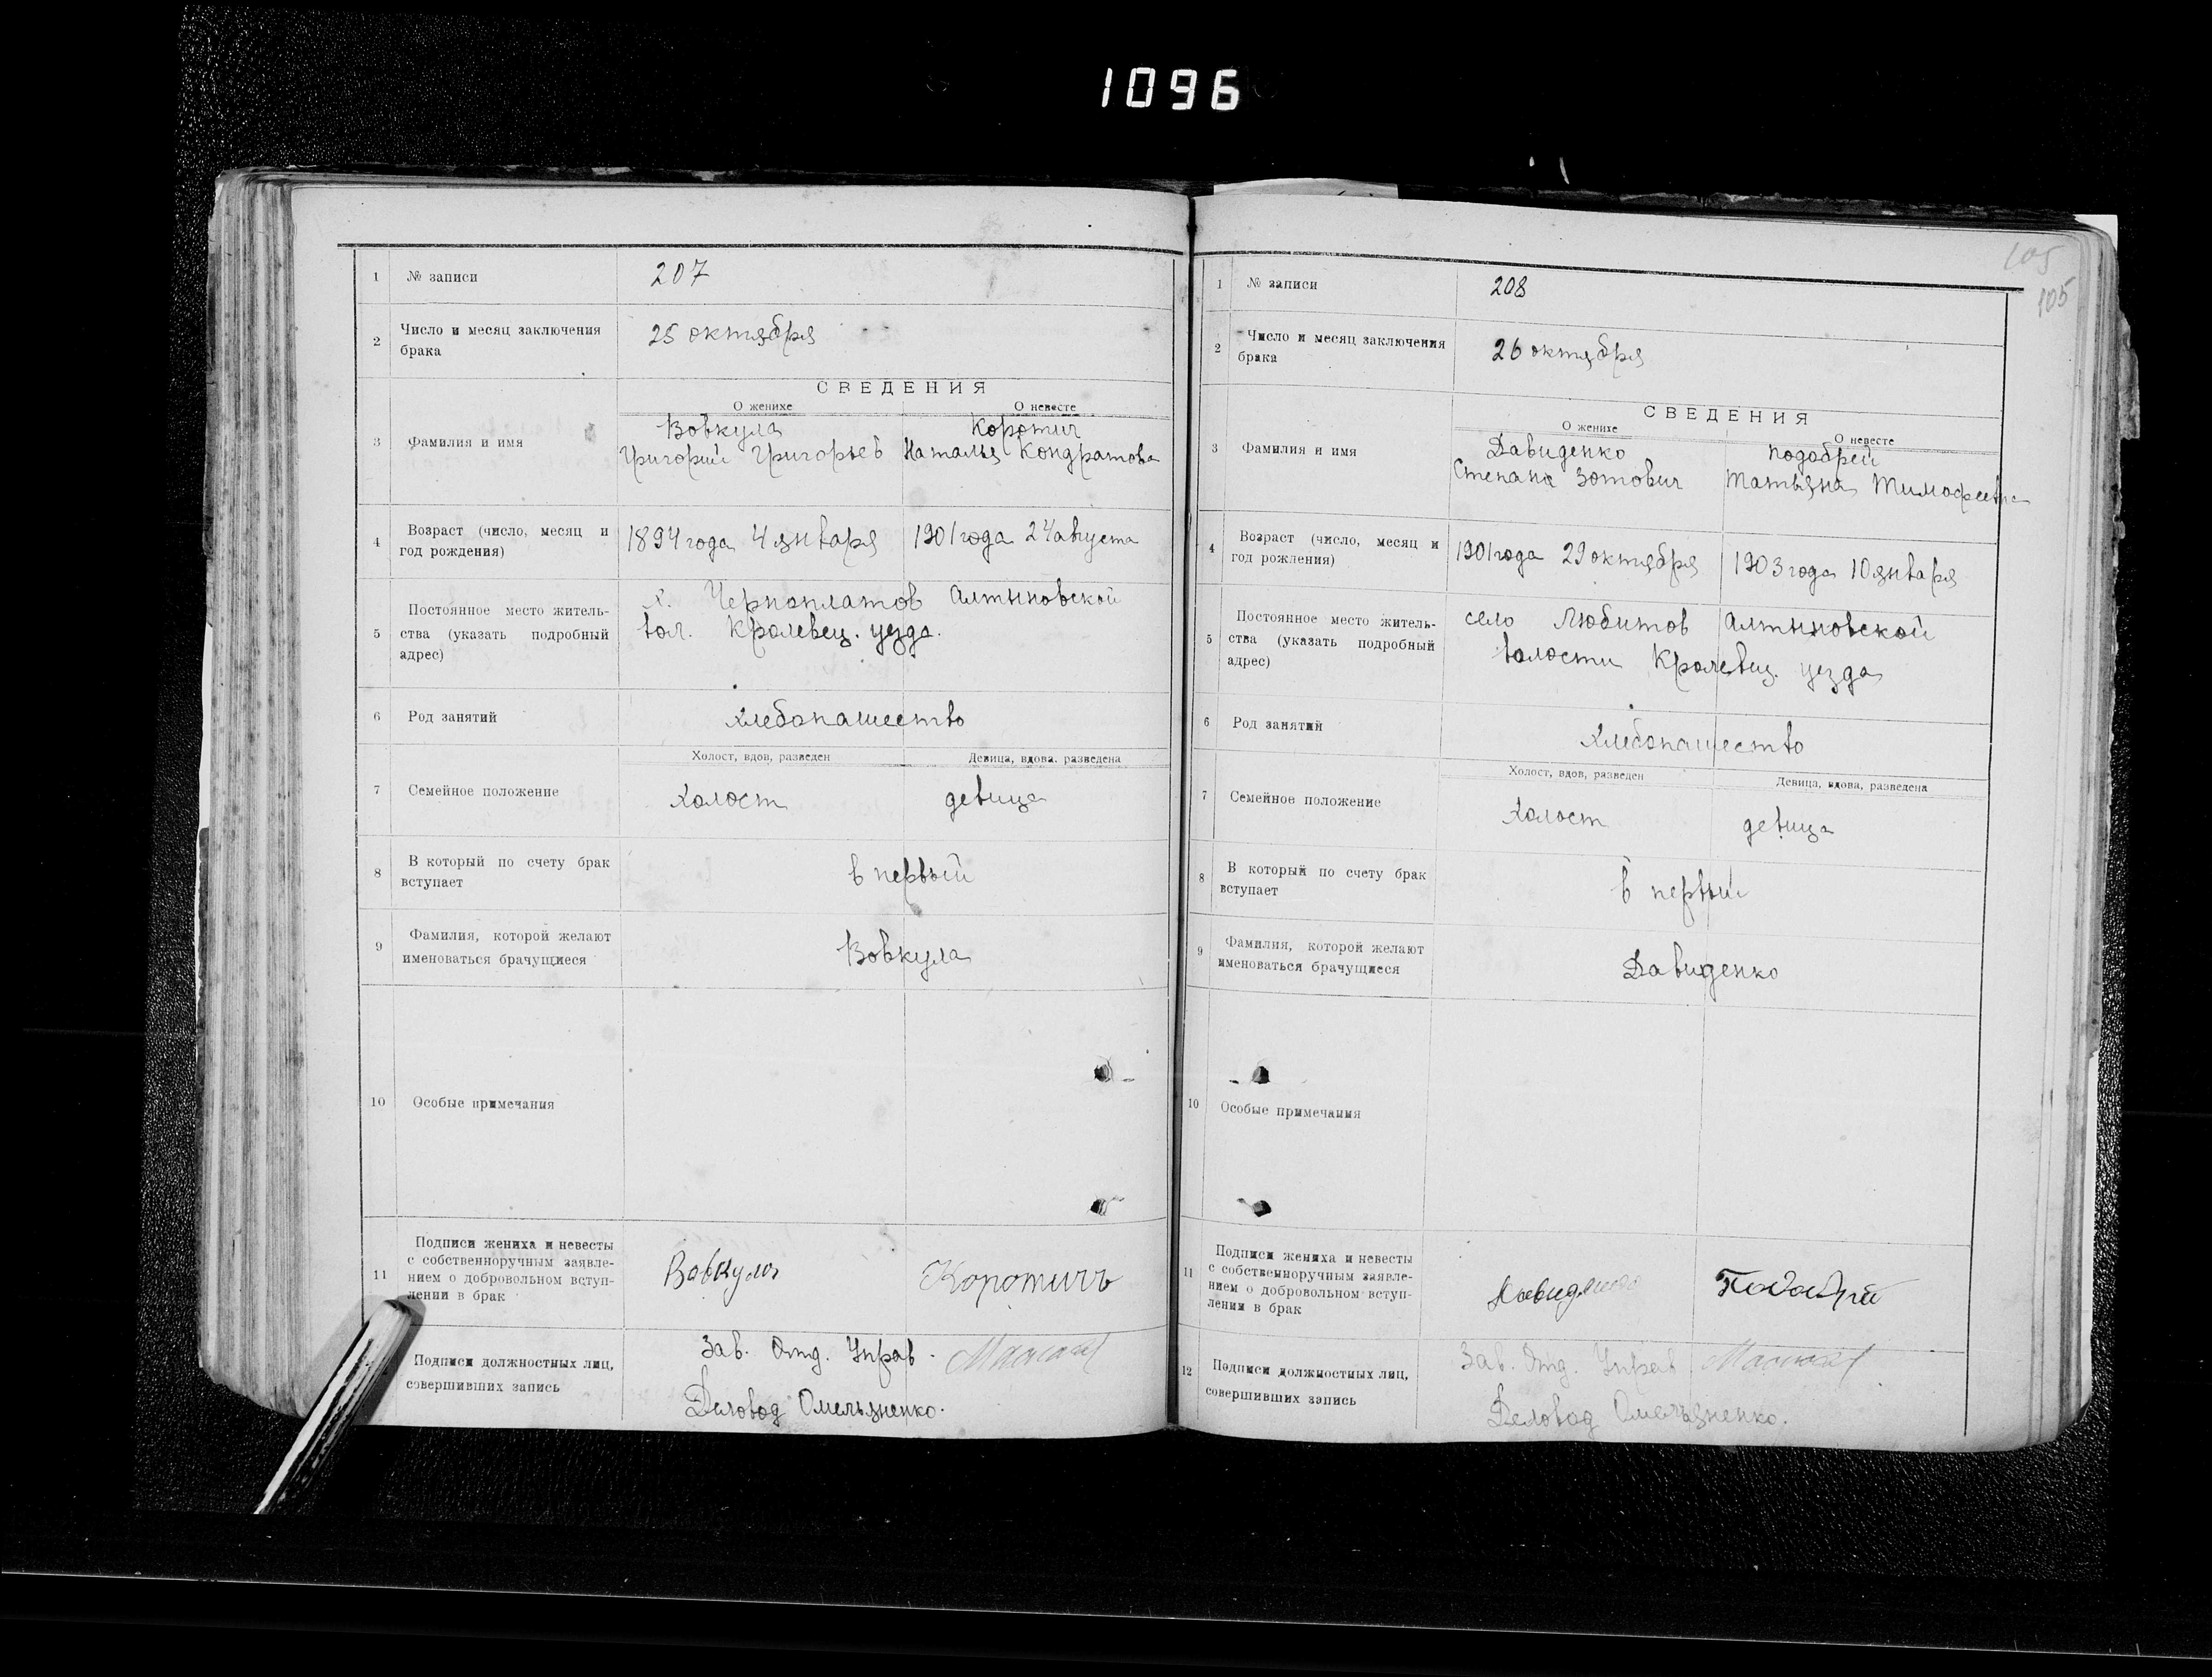 1096
1 № записи 207
2 Число и месяц заключения брака 25 октября
СВЕДЕНИЯ
О женихе О невесте
3 Фамилия и имя
Вовкула Коротич
Григорий Григорьев Наталья Кондратова
4 Возраст (число, месяц и год рождения) 1894 года 4 января 1901 года 24 августа
5 Постоянное место житель-
ства (указать подробный
адрес)
х. Черноплатов Алтыновской
вол. Кролевец. уезда.
6 Род занятий хлебопашество
Холост, вдов, разведен Девица, вдова, разведена
7 Семейное положение холост девица
8 В который по счету брак
вступает
в первый
9 Фамилия, которой желают
именоваться брачущиеся
Вовкула
10 Особые примечания
11 Подписи жениха и невесты
с собственноручным заявле-
нием о добровольном вступ-
лении в брак
Вовкула Коротичъ
Подписи должностных лиц,
совершивших запись
Зав. Отд. Управ.
Деловод Омельяненко.
105
105
1 № записи 208
2 Число и месяц заключения
брака
26 октября
СВЕДЕНИЯ
О женихе О невесте
3 Фамилия и имя
Давиденко Подобрей
Степана Зотович Татьяна Тимофеевна
4 Возраст (число, месяц и
год рождения)
1901 года 29 октября 1903 года 10 января
5 Постоянное место житель-
ства (указать подробный
адрес)
село Любитов Алтыновской
волости Кролевец. уезда
6 Род занятий хлебопашество
Холост, вдов, разведен Девица, вдова, разведена
7 Семейное положение холост девица
8 В который по счету брак
вступает
в первый
9 Фамилия, которой желают
именоваться брачущиеся
Давиденко
10 Особые примечания
11 Подписи жениха и невесты
с собственноручным заявле-
нием о добровольном вступ-
лении в брак
Давиденко Подобрей
12 Подписи должностных лиц,
совершивших запись
Зав. Отд. Управ
Деловод Омельяненко.